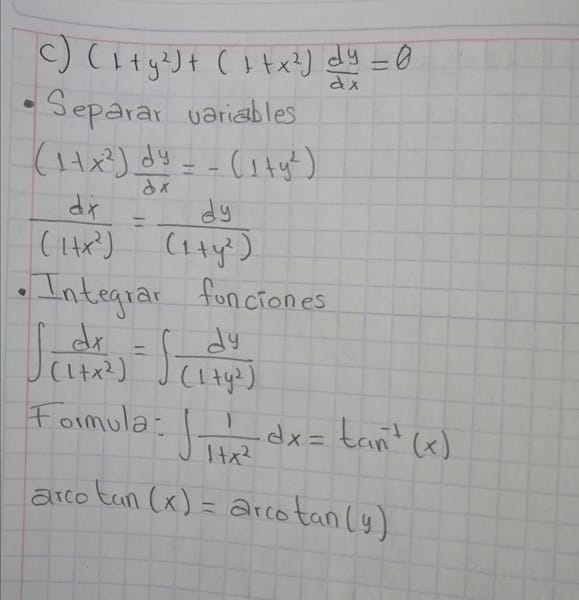 c) (1+y²)+ (1+x²) dy/dx = 0
• Separar variables
(1+x²) dy/dx = - (1+y²)
dx/(1+x²) = dy/(1+y²)
• Integrar funciones
∫ dx/(1+x²) = ∫ dy/(1+y²)
Formula: ∫ 1/1+x² dx = tan⁻¹(x)
arcotan(x) = arcotan(y)